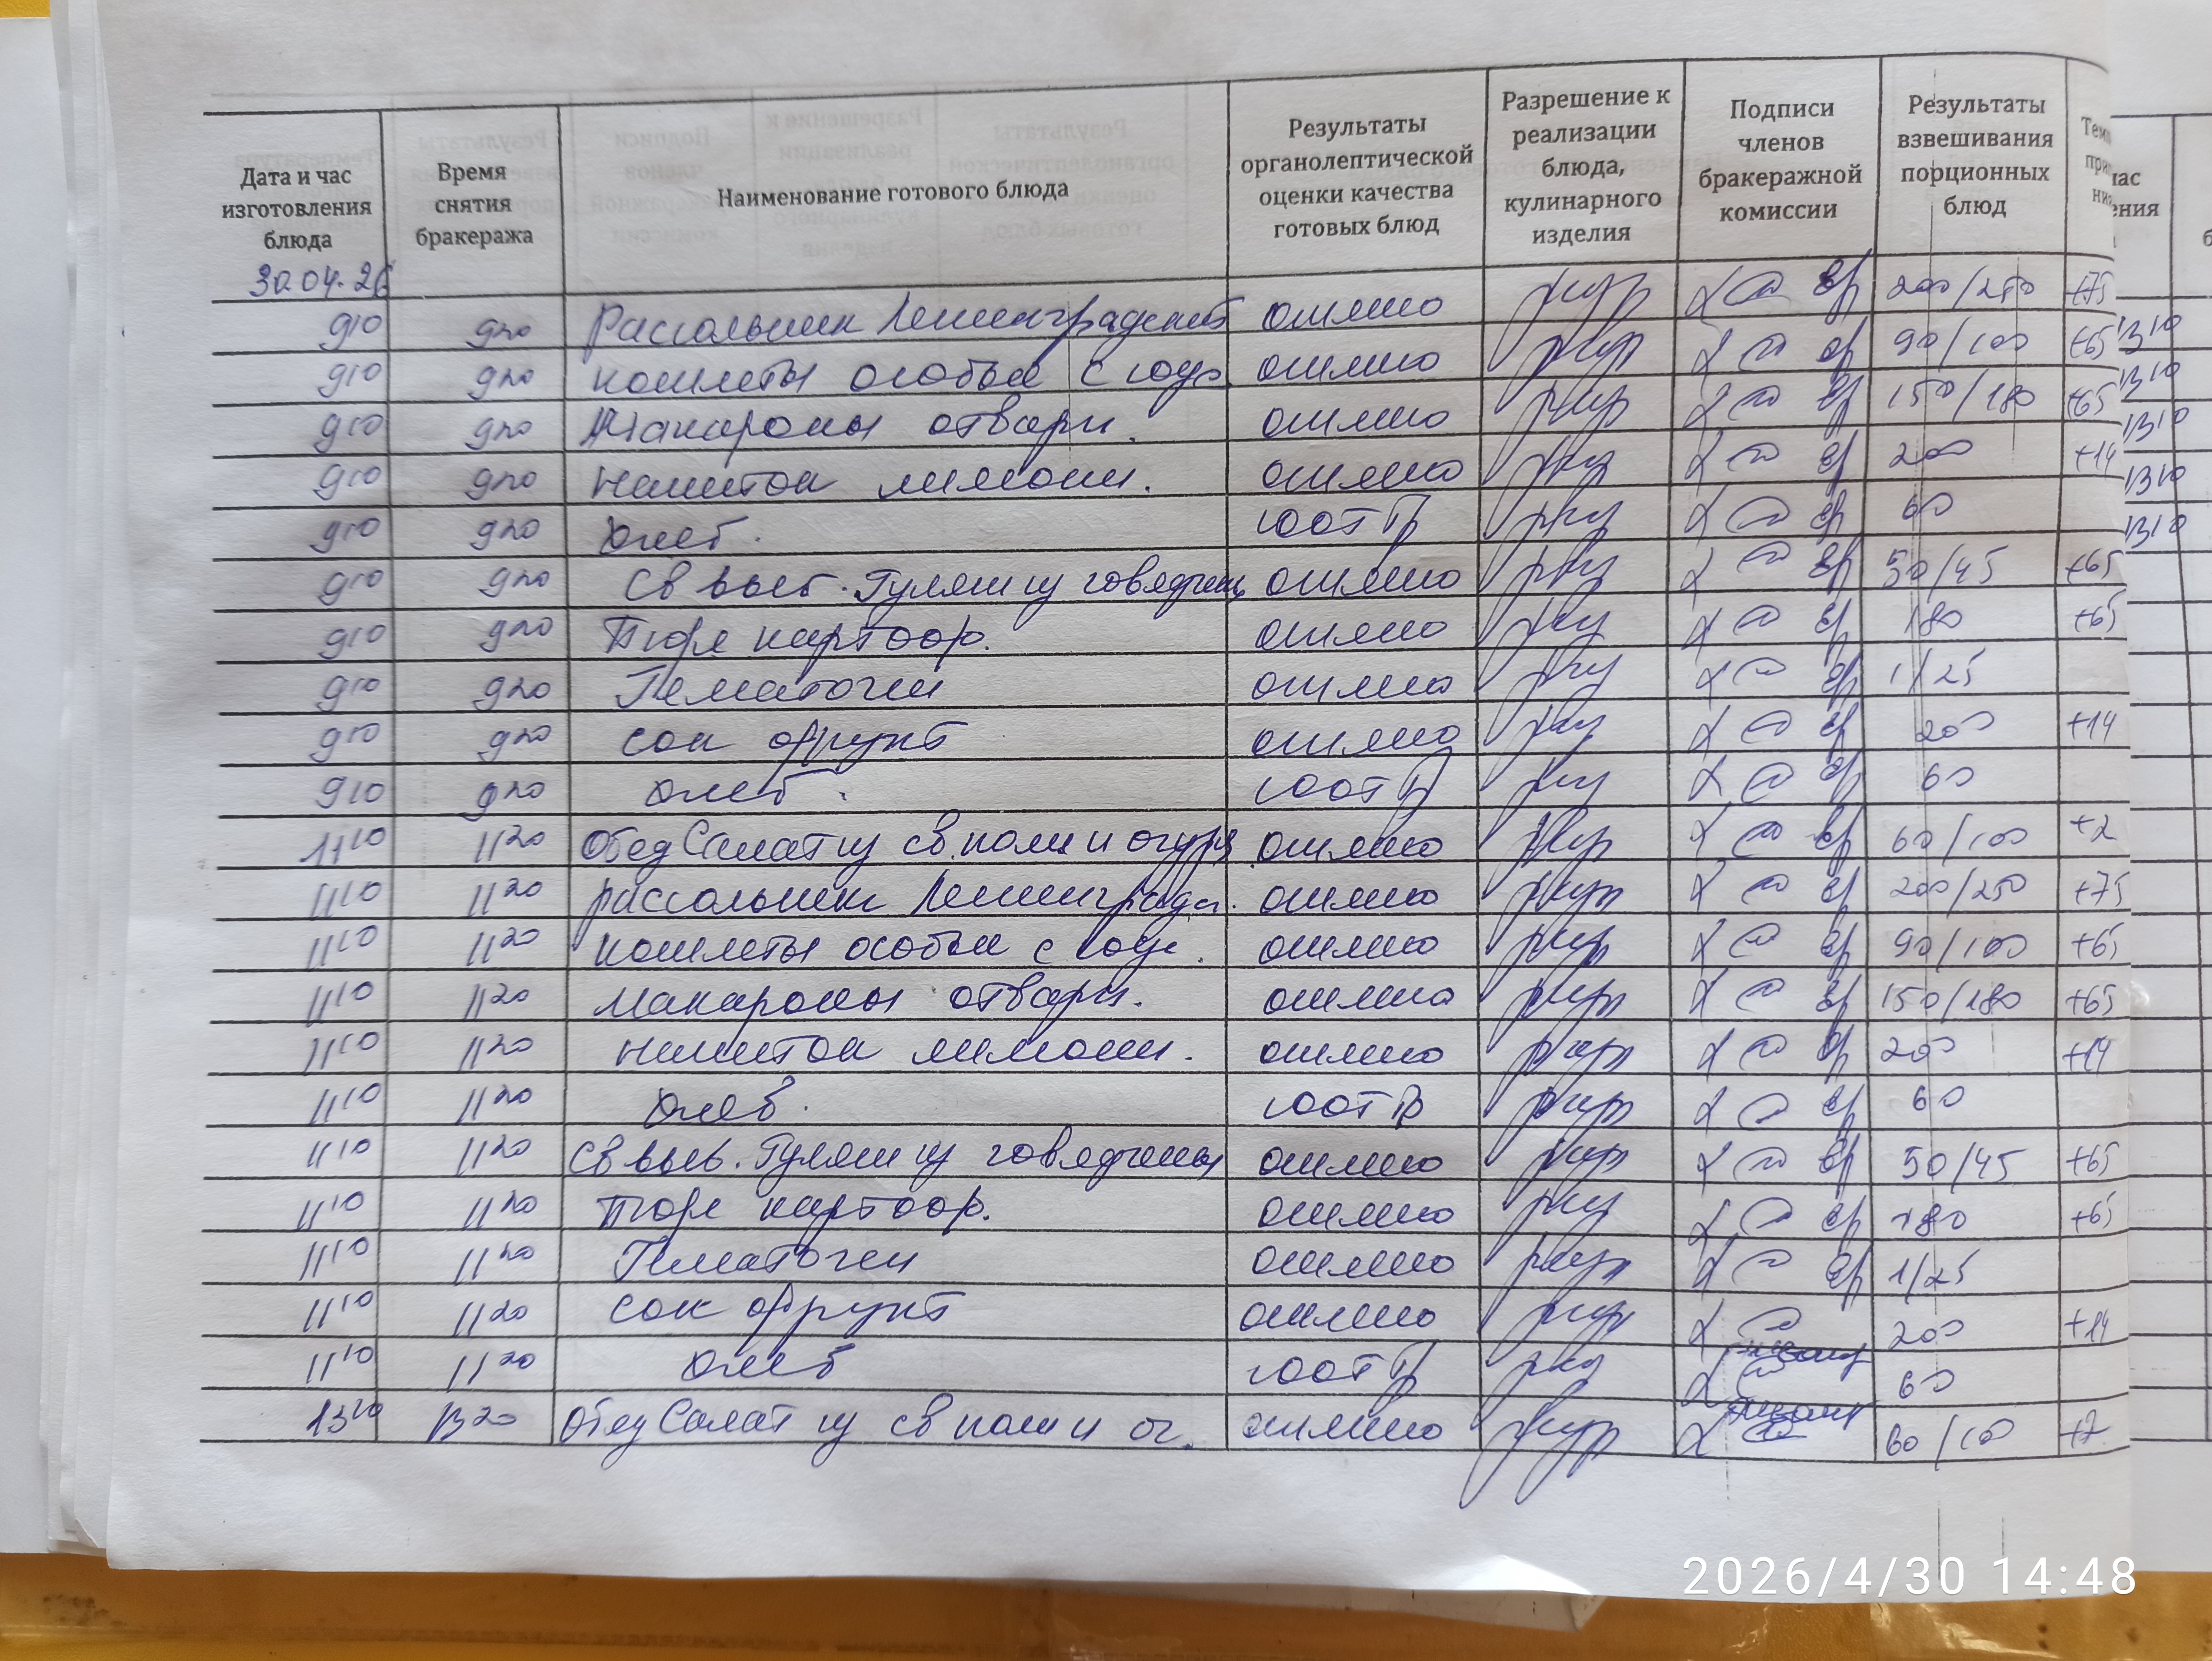 Дата и час изготовления блюда
Время снятия бракеража
Наименование готового блюда
Результаты органолептической оценки качества готовых блюд
Разрешение к реализации блюда, кулинарного изделия
Подписи членов бракеражной комиссии
Результаты взвешивания порционных блюд
30.04.26
9 10 9 20 Рассольник Ленинградский отлично 200/250 +75
9 10 9 20 котлеты особые с соус. отлично 90/100 +65
9 10 9 20 Макароны отварн. отлично 150/180 +65
9 10 9 20 напиток лимон. отлично 200 +14
9 10 9 20 хлеб. соотв 60
9 10 9 20 Св выб. Гуляш из говядины отлично 50/45 +65
9 10 9 20 Пюре картоф. отлично 180 +65
9 10 9 20 Гематоген отлично 1/25
9 10 9 20 сок фрукт отлично 200 +14
9 10 9 20 хлеб. соотв 60
11 10 11 20 Обед Салат из св. пом и огурц отлично 60/100 +2
11 10 11 20 рассольник Ленинградс. отлично 200/250 +75
11 10 11 20 котлеты особые с соус. отлично 90/100 +65
11 10 11 20 макароны отварн. отлично 150/180 +65
11 10 11 20 напиток лимонн. отлично 200 +14
11 10 11 20 хлеб. соотв 60
11 10 11 20 Св выб. Гуляш из говядины отлично 50/45 +65
11 10 11 20 пюре картоф. отлично 180 +65
11 10 11 20 Гематоген отлично 1/25
11 10 11 20 сок фрукт отлично 200 +14
11 10 11 20 хлеб соотв 60
13 10 13 20 Обед Салат из св пом и ог. отлично 60/100 +2
13 10
13 10
13 10
13 10
13 10
2026/4/30 14:48